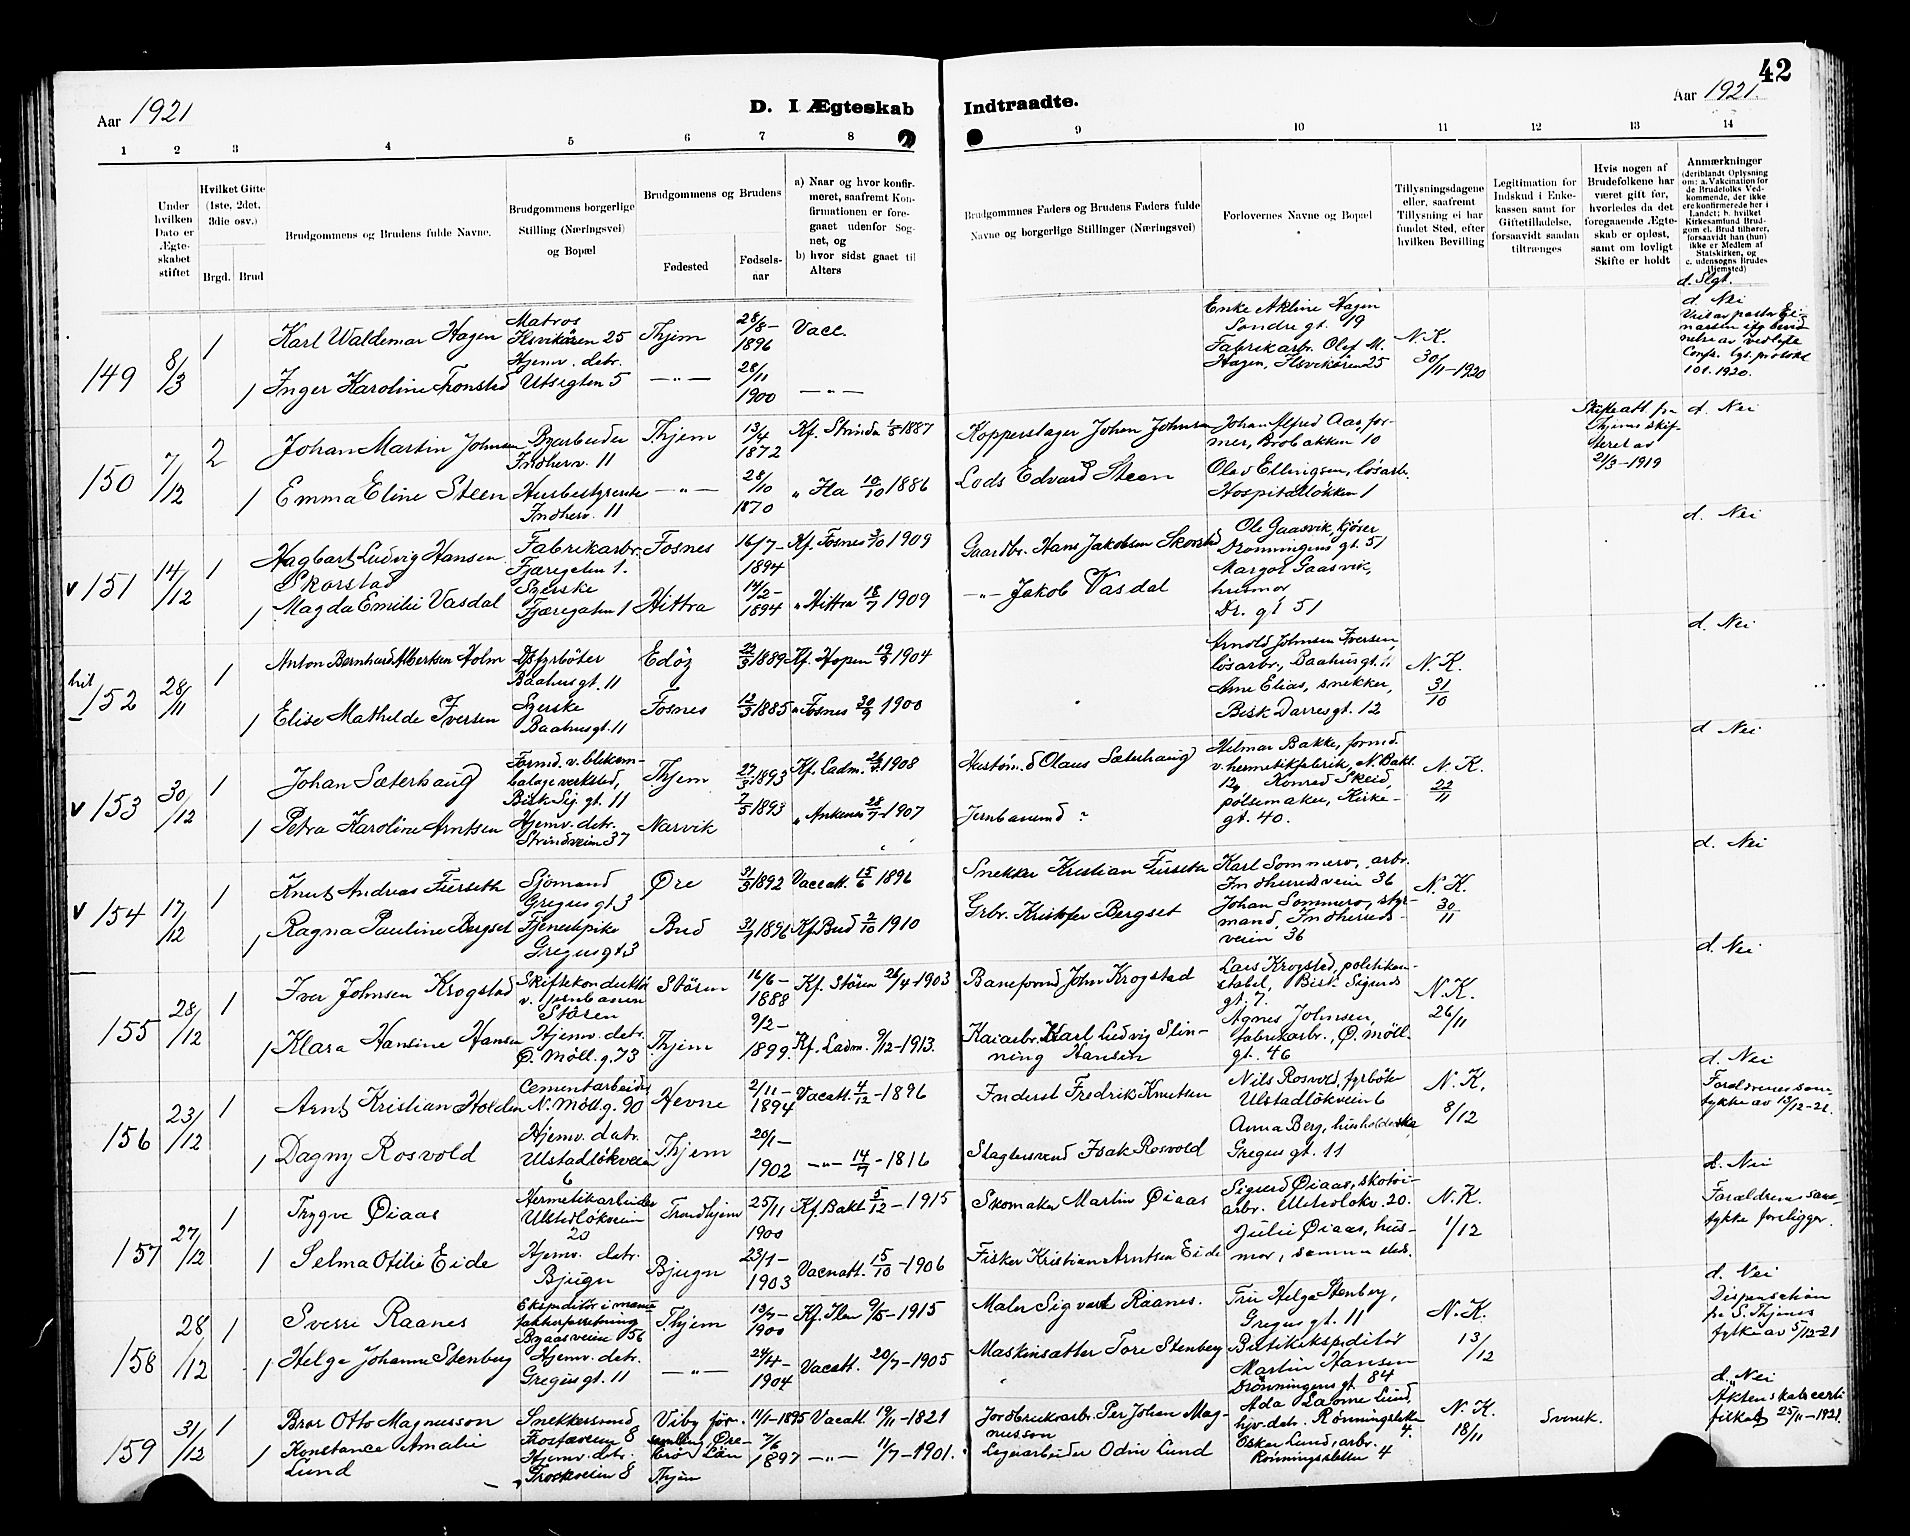 42
Aar 1921
D. I Ægteskab Indtraadte.
Aar 1921.
1 2 3 4 5 6 7 8 9 10 11 12 13 14
Under hvilken Dato er Ægteskabet stiftet
Hvilket Gifte (1ste, 2det, 3die osv.)
Brgd. Brud
Brudgommens og Brudens fulde Navne.
Brudgommens borgerlige Stilling (Næringsvei) og Bopæl
Brudgommens og Brudens
Fødested
Fødselsaar
a) Naar og hvor konfirmeret, saafremt Konfirmationen er foregaaet udenfor Sognet, og
b) hvor sidst gaaet til Alters
Brudgommnes Faders og Brudens Faders fulde Navne og borgerlige Stillinger (Næringsvei)
Forlovernes Navne og Bopæl
Tillysningsdagene eller, saafremt Tillysning ei har fundet Sted, efter hvilken Bevilling
Legitimation for Indskud i Enkekassen samt for Giftetilladelse, forsaavidt saadan tiltrænges
Hvis nogen af Brudefolkene har været gift før, hvorledes da det foregaaende Ægteskab er opløst, samt om lovligt Skifte er holdt
Anmærkninger (deriblandt Oplysning om: a. Vakcination for de Brudefolks Vedkommende, der ikke ere konfirmerede her i Landet; b. hvilket Kirkesamfund Brudgom el. Brud tilhører, forsaavidt han (hun) ikke er Medlem af Statskirken, og c. udensogns Brudes Hjemsted)
149 8/3 1
Karl Waldemar Hagen
Matros
Ilsvikøren 25
Thjem
28/8-1896
Vacc.
Enke Akline Hagen
Søndre gt. 19
Fabrikarbr. Olaf M.
Hagen, Ilsvikøren 25
N.K.
30/11-1920
d. Slgt.
d. Nei
1
Inger Karoline Tronstad
Hjemv. datr.
Utsigten 5
-"-
28/11 1900
-"-
101.1920.
150 7/12 2
Johan Martin Johnsen
Byarbeider
Indherv. 11
Thjem
13/4 1872
Kf. Strinda 1887
Kopperslager Johan Johnsen
Johan Alfred Aas, former, Brobakken 10
Skifteatt. fra
Thjems skifteret av
21/3-1919
d. Nei
1
Emma Eline Steen
Husbestyrerske
Indherv. 11
-"-
28/10 1870
" Ila 10/10 1886
Lods Edvard Steen
Olav Ellingsen, løsarb.
Hospitalsløkken 1
v 151 14/12 1
Hagbart Ludvig Hansen
Skorstad
Fabrikarbr.
Fjæregaten 1.
Fosnes
16/7-1894
Kf. Fosnes 3/10 1909
Gaardbr. Hans Jakobsen Skorstad
Ole Gaasvik, kjører
Dronningens gt. 51
d. Nei
1
Magda Emilie Vasdal
Syerske
Fjæregaten 1
Hittra
14/2-1894
" Hittra 18/7 1909
-"- Jakob Vasdal
Margot Gaasvik,
husmor
Dr. gt 51
hit
152 28/11 1
Anton Bernhard Albertsen Holm
Baahus gt. 11
Edöy
1889
Kf. Hopen 1904
Arnold Johnsen Iversen,
løsarbr., Baahusgt. 11
N.K.
31/10
d. Nei
1
Elise Mathilde Iversen
Syerske
Baahusgt. 11
Fosnes
12/3 1885
" Fosnes 30/9 1900
Arne Elias, snekker,
Bisk Darres gt. 12
v 153 30/12 1
Johan Sæterhaug
Formd. v. blikemballage verksted,
Bisk Sig. gt. 11
Thjem
27/3 1893
Kf. Ladm. 1908
Olaus Sæterhaug
Hilmar Bakke, formd.
v. hermetikfabrik, N. Bakl.
12, Konrad Skeid,
pølsemaker, Kirkegt. 40.
N.K.
22/11
d. Nei
1
Petra Karoline Arntsen
Hjemv. datr.
Strindveien 37
Narvik
7/5 1893
" Ankenes 28/7-1907
Jernbanemd ?
v 154 17/12 1
Knut Andreas Fürseth
Sjømand
Gregus gt 3
Øre
1892
Vaccatt. 15/6 1896
Snekker Kristian Fürseth
Karl Sommero, arbr.
Indherredsveien 36
N.K.
30/11
d. Nei
1
Ragna Pauline Bergset
Tjenestpike
Gregus gt 3
Bud
1896
Kf. Bud 2/10 1910
Grbr. Kristofer Bergset
Johan Sommero, styrmand, Indherredsveien 36
155 28/12 1
Iver Johnsen Krogstad
Skiftekonduktør
v. jernbanen
Støren
Støren
16/6-1888
Kf. Støren 26/4-1903
Baneformd John Krogstad
Lars Krogstad, politikonstabel, Bisk. Sigurds
gt. 7.
N.K.
26/11
d. Nei
1
Klara Hansine Hansen
Hjemv. datr.
Ø. Møll. g. 73
Thjem
9/2-1899.
Kf. Ladm. 9/12-1913.
Kaiarbr. Karl Ludvig Slinning Hansen
Agnes Johnsen,
fabrikarbr., Ø. Møll.
gt. 46
156 23/12 1
Arnt Kristian Holden
Cementarbeider
N. Møll. g. 90
Hevne
2/11-1894
Vaccatt. 4/12-1896
Inderst Fredrik Knutsen
Nils Rosvold, fyrbøter
Ulstadløkveien 6
N.K.
8/12
d. Nei
Forældrenes samtykke av 13/12-21.
1
Dagny Rosvold
Hjemv. datr.
Ulstadløkveien
6
Thjem
20/1-1902
-"- 14/7-1816
Slagtersvend Isak Rosvold
Anna Berg, husholderske
Gregus gt. 11
157 27/12 1
Trygve Øiaas
Hermetikarbeider
Ulstadløkveien
20
Trondhjem
25/11 1900
Kf. Bakl. 5/12-1915
Skomaker Martin Øiaas
Sigurd Øiaas, skotøiarbr. Ulstadløkv. 20.
N.K.
1/12
d. Nei
Forældrenes samtykke foreligger.
1
Selma Otilie Eide
Hjemv. datr.
Bjugn
Bjugn
23/1-1903
Vaccatt. 15/10-1906
Fisker Kristian Arntsen Eide
Julie Øiaas, husmor, samme sted.
158 28/12 1
Sverre Raanes
Ekspeditör i manufakturforretning
Byaasveien 56
Thjem
13/7-1900
Kf. Ilen 9/5-1915
Maler Sigvart Raanes.
Fru Helga Stenberg,
Gregus gt. 11
N.K.
13/12
d. Nei
Dispensation
fra S. Thjems
fylke av 5/12-21
1
Helga Johanne Stenberg
Hjemv. datr.
Gregus gt. 11
-"-
24/4-1904
Vacatt. 20/7-1905
Maskinsætter Tore Stenberg
Butikekspeditör
Martin Hansen
Dronningens gt 84
159 31/12 1
Bror Otto Magnusson
Snekkersvend
Frostaveien 8
Viby församling, Örebro Län
11/1-1895
Vacatt. 19/11-1821
Jordbruksarbr. Per Johan Magnusson
Ada Laome Lund,
hjv. datr. Rønningsletta
4.
N.K.
18/11
Svensk.
d. Nei
Äktenskabscertifikat 25/11-1921.
1
Konstance Amalie
Lund
Hjemv. datr.
" Frostaveien 8
Thjem
7/6 1897
-"- 11/7-1901.
Legearbeider Odin Lund
Oskar Lund, arbr.
Rønningsletten 4